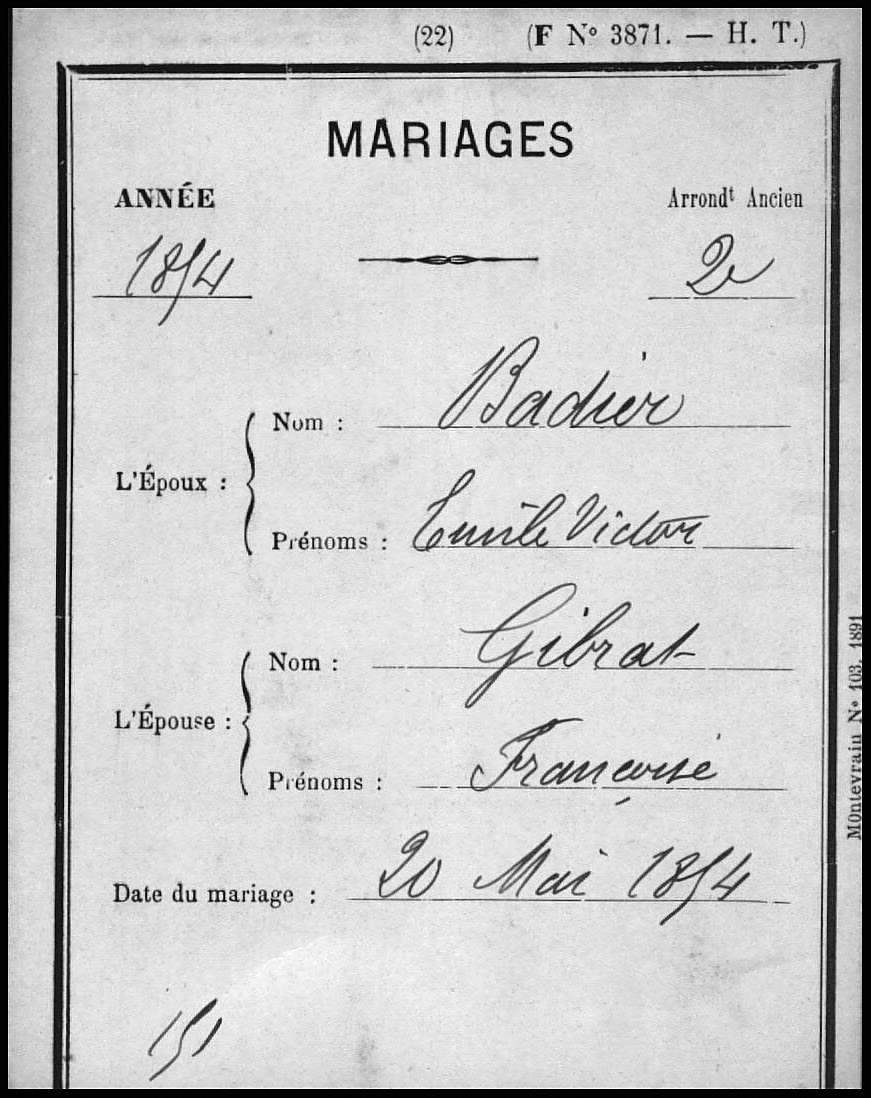 (22) (F Nº 3871. — H. T.)
MARIAGES
ANNÉE Arrondt Ancien
1854 2e
L'Époux :
Nom : Badier
Prénoms : Emile Victor
L'Épouse :
Nom : Gibrat
Prénoms : Françoise
Date du mariage : 20 Mai 1854
151
Montévrain Nº 103. 1891